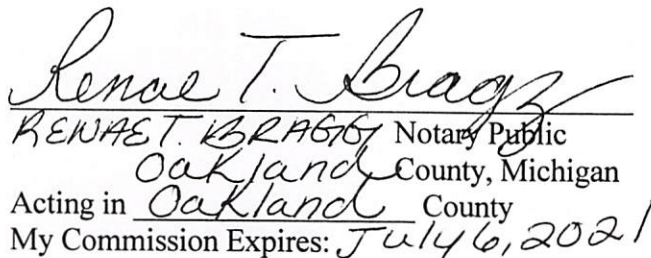 Renae T. Bragg
RENAE T. BRAGG, Notary Public
Oakland County, Michigan
Acting in Oakland County
My Commission Expires: July 6, 2021